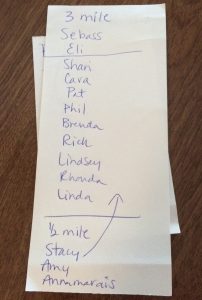 3 mile
Sebass
Eli
Shari
Cara
Pat
Phil
Brenda
Rich
Lindsey
Rhonda
Linda
½ mile
Stacy
Amy
Annmarais